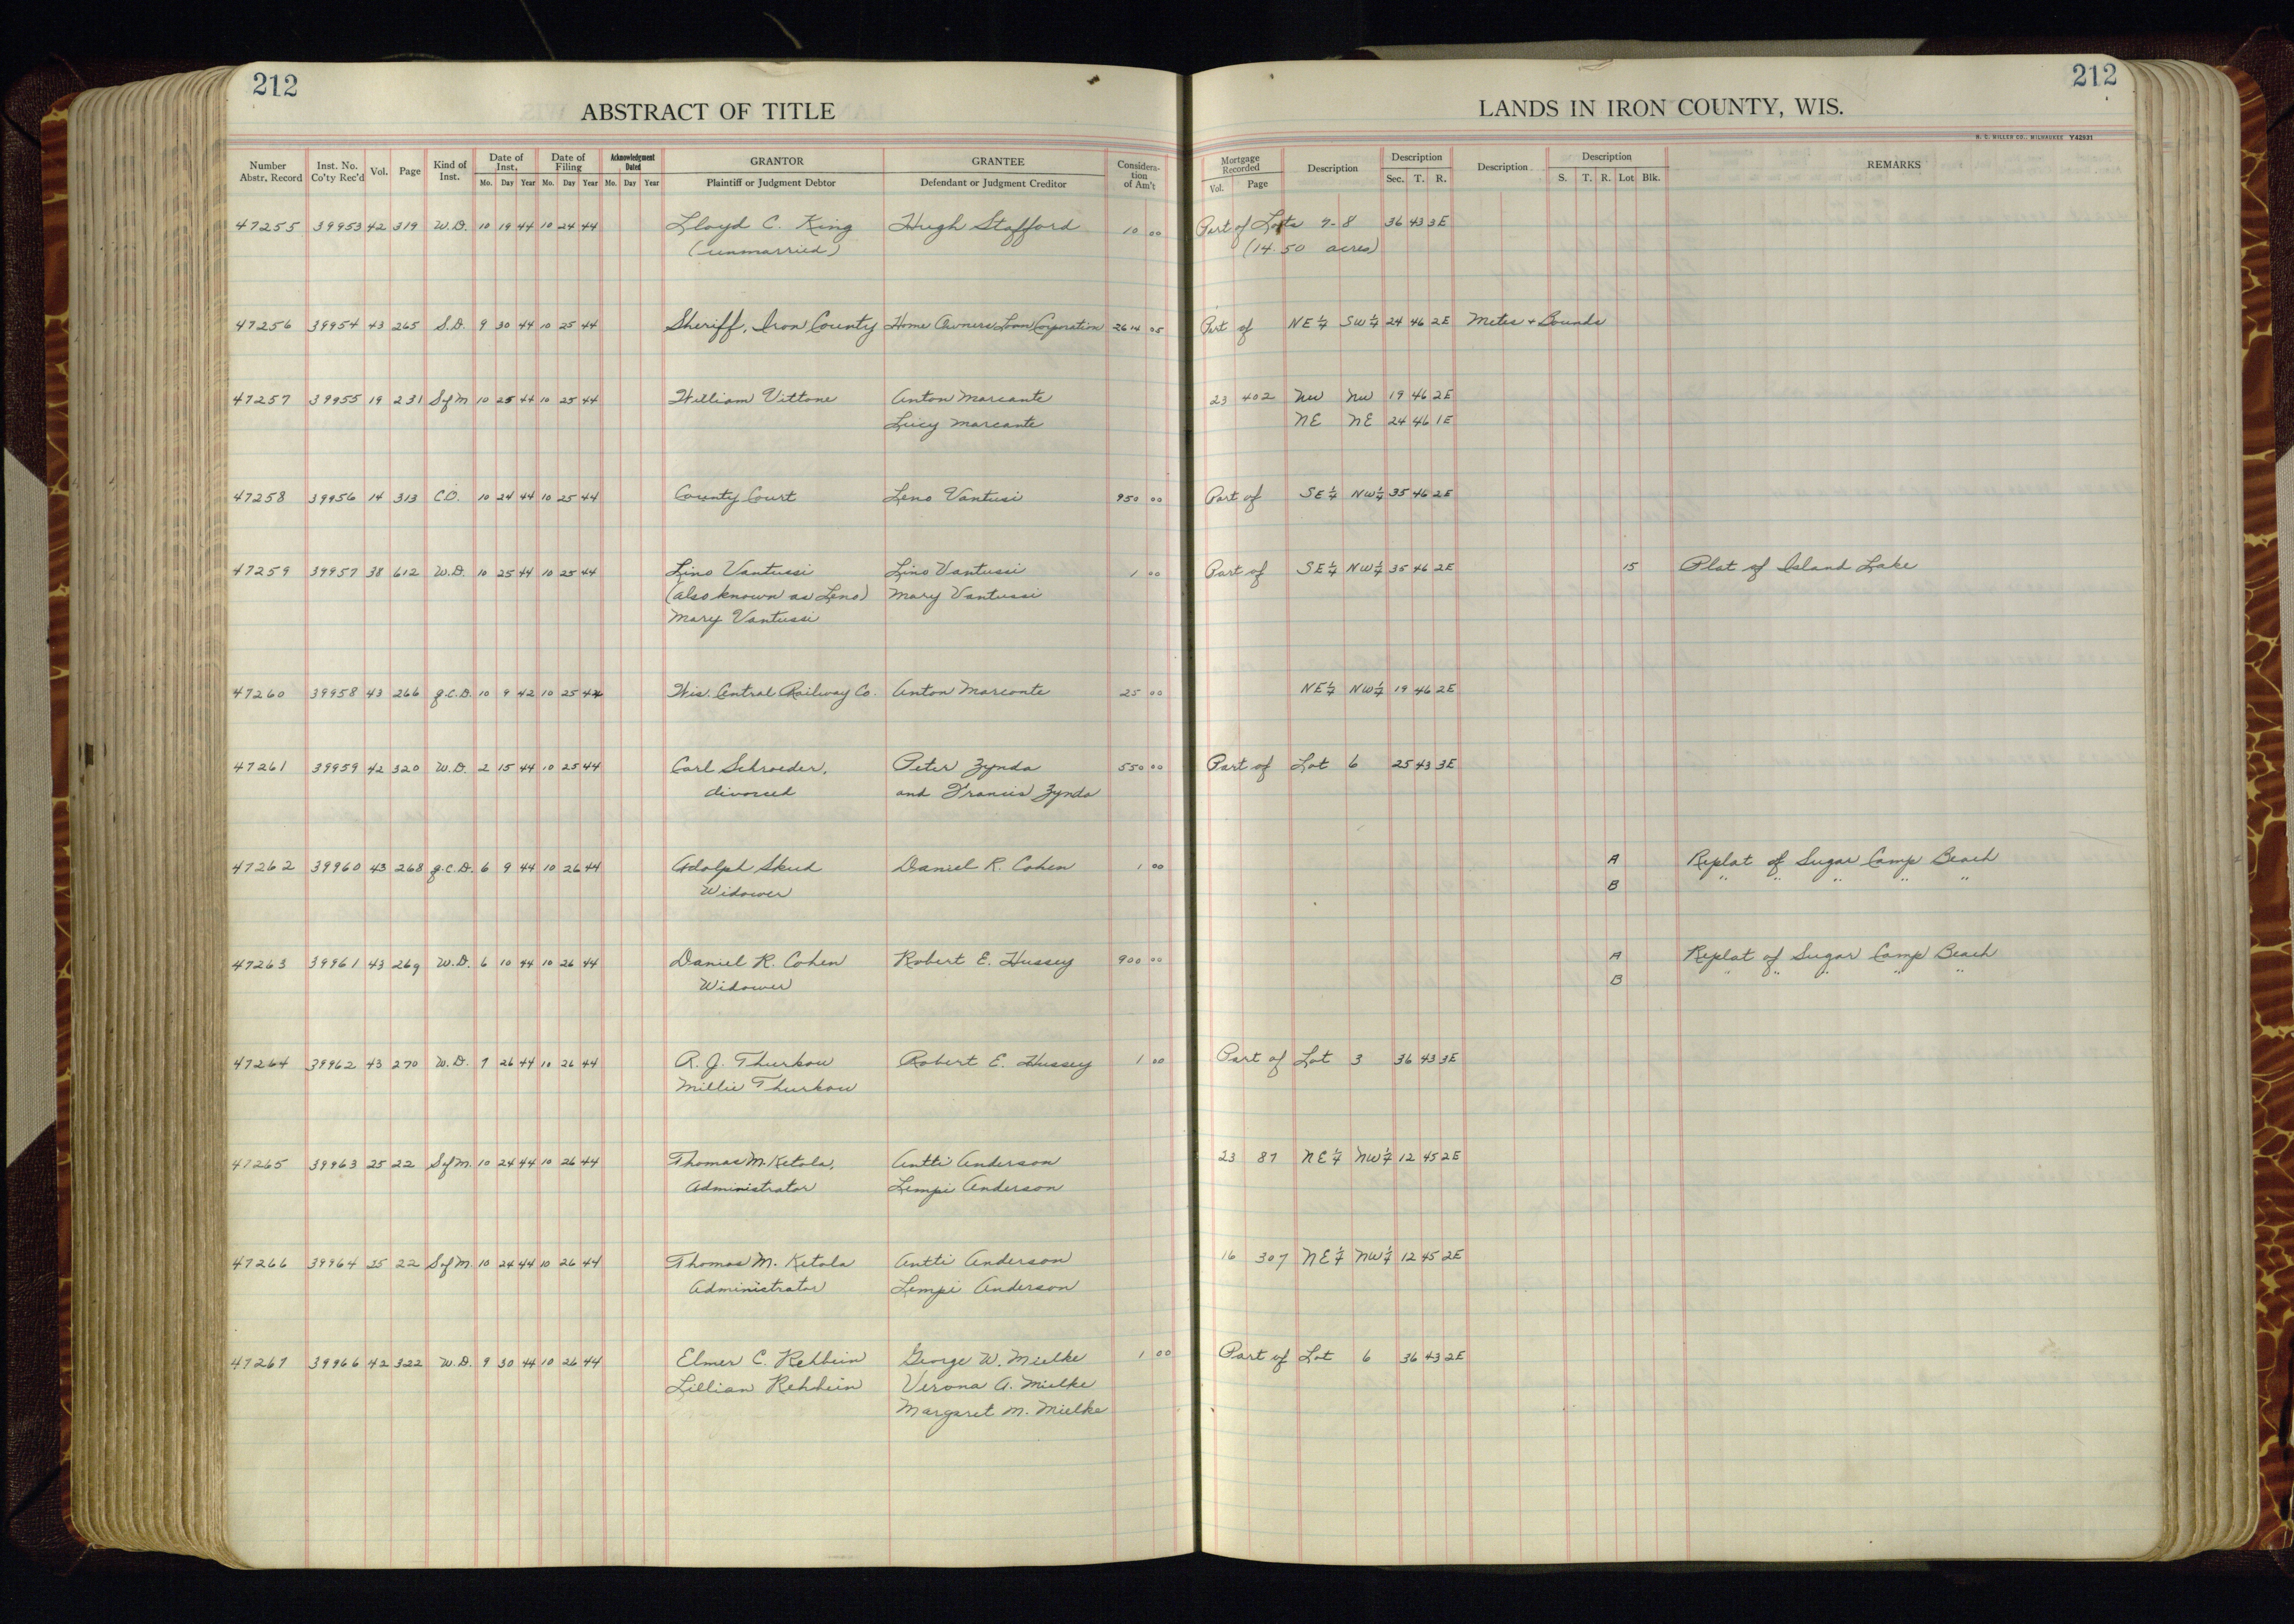 212
212
ABSTRACT OF TITLE
LANDS IN IRON COUNTY, WIS.
H. C. MILLER CO., MILWAUKEE Y42931
Number Abstr. Record Inst. No. Co'ty Rec'd Vol. Page Kind of Inst. Date of Inst. Mo. Day Year Date of Filing Mo. Day Year Acknowledgment Dated Mo. Day Year GRANTOR Plaintiff or Judgment Debtor GRANTEE Defendant or Judgment Creditor Considera-tion of Am't Mortgage Recorded Vol. Page Description Description Sec. T. R. Description Description S. T. R. Lot Blk. REMARKS
47255 39953 42 319 W.D. 10 19 44 10 24 44 Lloyd C. King Hugh Stafford 10 00 Part of Lots 7-8 36 43 3E
(unmarried) (14.50 acres)
47256 39954 43 265 S.D. 9 30 44 10 25 44 Sheriff, Iron County Home Owners Loan Corporation 2614 05 Part of NE¼ SW¼ 24 46 2E Metes + Bounds
47257 39955 19 231 S of M 10 25 44 10 25 44 William Vittone Anton Marcante 23 402 NW NW 19 46 2E
Lucy Marcante NE NE 24 46 1E
47258 39956 14 313 C.D. 10 24 44 10 25 44 County Court Leno Vantusi 950 00 Part of SE¼ NW¼ 35 46 2E
47259 39957 38 612 W.D. 10 25 44 10 25 44 Lino Vantussi Lino Vantussi 1 00 Part of SE¼ NW¼ 35 46 2E 15 Plat of Island Lake
(also known as Leno) Mary Vantussi
Mary Vantussi
47260 39958 43 266 q.C.D. 10 9 42 10 25 44 Wis. Central Railway Co. Anton Marconte 25 00 NE¼ NW¼ 19 46 2E
47261 39959 42 320 W.D. 2 15 44 10 25 44 Carl Schroeder, Peter Zynda 550 00 Part of Lot 6 25 43 3E
divorced and Francis Zynda
47262 39960 43 268 q.C.D. 6 9 44 10 26 44 Adolph Skud Daniel R. Cohen 1 00 A Replat of Sugar Camp Beach
Widower B " " " " "
47263 39961 43 269 W.D. 6 10 44 10 26 44 Daniel R. Cohen Robert E. Hussey 900 00 A Replat of Sugar Camp Beach
Widower B " " " " "
47264 39962 43 270 W.D. 7 26 44 10 26 44 R. J. Thurkow Robert E. Hussey 1 00 Part of Lot 3 36 43 3E
Millie Thurkow
47265 39963 25 22 S of M. 10 24 44 10 26 44 Thomas M. Ketola, Antti Anderson 23 87 NE¼ NW¼ 12 45 2E
Administrator Lempi Anderson
47266 39964 25 22 S of M. 10 24 44 10 26 44 Thomas M. Ketola Antti Anderson 16 307 NE¼ NW¼ 12 45 2E
Administrator Lempi Anderson
47267 39966 42 322 W.D. 9 30 44 10 26 44 Elmer C. Rehbein George W. Mielke 1 00 Part of Lot 6 36 43 2E
Lillian Rehbein Verona A. Mielke
Margaret M. Mielke